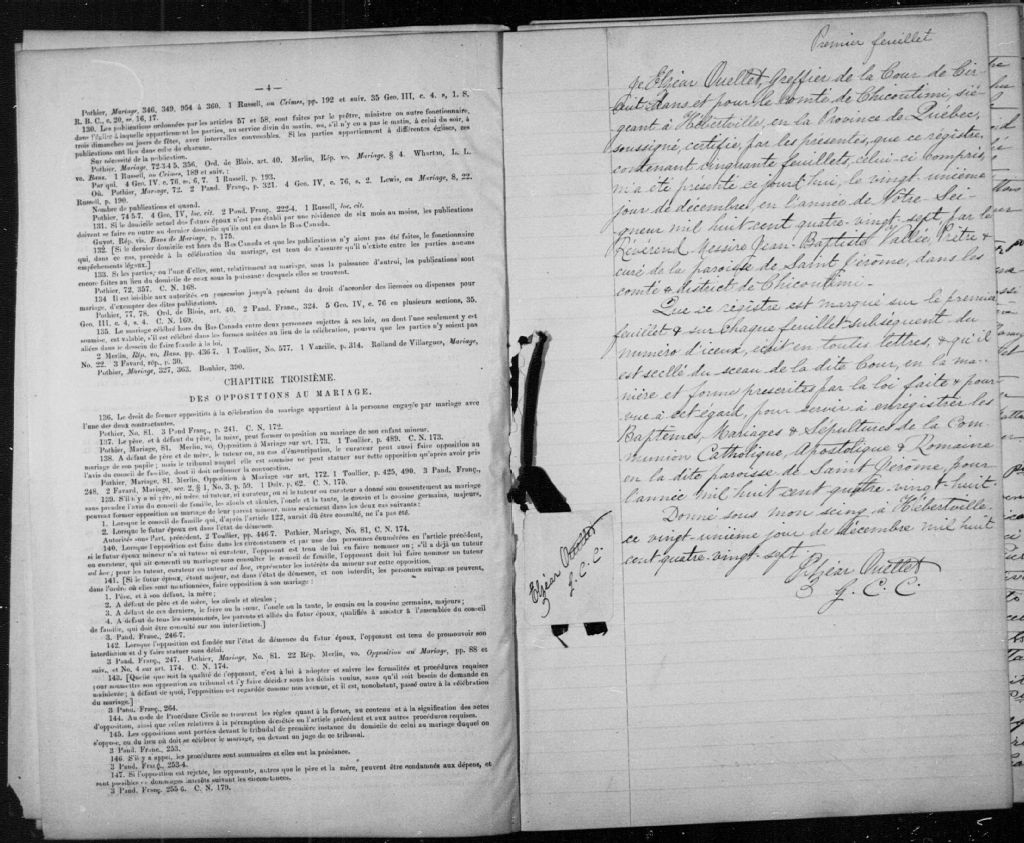 — 4 —
Pothier, Mariage, 346, 349, 354 à 360. 1 Russell, on Crimes, pp. 192 et suiv. 35 Geo. III, c. 4. s, 1. S.
R. B. C., c. 20, ss. 16, 17.
130. Les publications ordonnées par les articles 57 et 58, sont faites par le prêtre, ministre ou autre fonctionnaire,
dans l'église à laquelle appartiennent les parties, au service divin du matin, ou, s'il n'y en a pas le matin, à celui du soir, à
trois dimanches ou jours de fêtes, avec intervalles convenables. Si les parties appartiennent à différentes églises, ces
publications ont lieu dans celle de chacune.
Sur nécessité de la publication.
Pothier, Mariage, 72-3 4 5, 356. Ord. de Blois, art. 40. Merlin, Rép. vo. Mariage, § 4. Wharton, L. L.
vo. Bans. 1 Russell, on Crimes, 189 et suiv. :
Par qui. 4 Geo. IV, c. 76, ss. 6, 7. 1 Russell, p. 193.
Où. Pothier, Mariage, 72. 2 Pand. Franç., p. 321. 4 Geo. IV, c. 76, s. 2. Lewis, on Mariage, 8, 22.
Russell, p. 190.
Nombre de publications et quand.
Pothier, 74 5-7. 4 Geo. IV, loc. cit. 2 Pand. Franç. 222-4. 1 Russell, loc. cit.
131. Si le domicile actuel des futurs époux n'est pas établi par une résidence de six mois au moins, les publications
doivent se faire en outre au dernier domicile qu'ils ont eu dans le Bas Canada.
Guyot, Rép. vis. Bans de Mariage, p. 175.
132. [Si le dernier domicile est hors du Bas Canada et que les publications n'y aient pas été faites, le fonctionnaire
qui, dans ce cas, procède à la célébration du mariage, est tenu de s'assurer qu'il n'existe entre les parties aucuns
empêchements légaux.]
133. Si les parties, ou l'une d'elles, sont, relativement au mariage, sous la puissance d'autrui, les publications sont
encore faites au lieu du domicile de ceux sous la puissance desquels elles se trouvent.
Pothier, 72, 357. C. N. 168.
134 Il est loisible aux autorités en possession jusqu'à présent du droit d'accorder des licences ou dispenses pour
mariage, d'exempter des dites publications.
Pothier, 77, 78. Ord. de Blois, art. 40. 2 Pand. Franç., 324. 5 Geo. IV, c. 76 en plusieurs sections, 35.
Geo. III, c. 4, s. 4. C. N. 169.
135. Le mariage célébré hors du Bas Canada entre deux personnes sujettes à ses lois, ou dont l'une seulement y est
soumise, est valable, s'il est célébré dans les formes usitées au lieu de la célébration, pourvu que les parties n'y soient pas
allées dans le dessein de faire fraude à la loi.
2 Merlin, Rép. vo. Bans, pp. 436-7. 1 Toullier, No. 577. 1 Vazeille, p. 314. Rolland de Villargues, Mariage,
No. 22. 3 Favard, rép., p. 30.
Pothier, Mariage, 327, 363. Bouhier, 390.
CHAPITRE TROISIÈME.
DES OPPOSITIONS AU MARIAGE.
136. Le droit de former opposition à la célébration du mariage appartient à la personne engagée par mariage avec
l'une des deux contractantes.
Pothier, No. 81. 3 Pand Franç., p. 241. C. N. 172.
137. Le père, et à défaut du père, la mère, peut former opposition au mariage de son enfant mineur.
Pothier, Mariage, 81. Merlin, vo. Opposition à Mariage sur art. 173. 1 Toullier, p. 489. C. N. 173.
138. A défaut de père et de mère, le tuteur ou, au cas d'émancipation, le curateur peut aussi faire opposition au
mariage de son pupille ; mais le tribunal auquel elle est soumise ne peut statuer sur cette opposition qu'après avoir pris
l'avis du conseil de famille, dont il doit ordonner la convocation.
Pothier, Mariage, 81. Merlin, Opposition à Mariage sur art. 172. 1 Toullier, p. 425, 490. 3 Pand. Franç.,
248. 2 Favard, Mariage, sec. 2, § 1, No. 3, p. 59. 1 Delv. p. 62. C. N. 175.
139. S'il n'y a ni père, ni mère, ni tuteur, ni curateur, ou si le tuteur ou curateur a donné son consentement au mariage
sans prendre l'avis du conseil de famille, les aïeuls et aïeules, l'oncle et la tante, le cousin et la cousine germains, majeurs,
peuvent former opposition au mariage de leur parent mineur, mais seulement dans les deux cas suivants :
1. Lorsque le conseil de famille qui, d'après l'article 122, aurait dû être consulté, ne l'a pas été.
2. Lorsque le futur époux est dans l'état de démence.
Autorités sous l'art. précédent, 2 Toullier, pp. 446-7. Pothier, Mariage, No. 81, C. N. 174.
140. Lorsque l'opposition est faite dans les circonstances et par une des personnes énumérées en l'article précédent,
si le futur époux mineur n'a ni tuteur ni curateur, l'opposant est tenu de lui en faire nommer un ; s'il a déjà un tuteur
ou curateur, qui ait consenti au mariage sans consulter le conseil de famille, l'opposant doit lui faire nommer un tuteur
ad hoc ; pour les tuteur, curateur ou tuteur ad hoc, représenter les intérêts du mineur sur cette opposition.
141. [Si le futur époux, étant majeur, est dans l'état de démence, et non interdit, les personnes suivantes peuvent,
dans l'ordre où elles sont mentionnées, faire opposition à son mariage :
1. Père, et à son défaut, la mère ;
2. A défaut de père et de mère, les aïeuls et aïeules ;
3. A défaut de ces derniers, le frère ou la sœur, l'oncle ou la tante, le cousin ou la cousine germains, majeurs ;
4. A défaut de tous les susnommés, les parents et alliés du futur époux, qualifiés à assister à l'assemblée du conseil
de famille, qui doit être consulté sur son interdiction.]
3. Pand. Franç., 246-7.
142. Lorsque l'opposition est fondée sur l'état de démence du futur époux, l'opposant est tenu de promouvoir son
interdiction et d'y faire statuer sans délai.
3 Pand. Franç., 247. Pothier, Mariage, No. 81. 22 Rép. Merlin, vo. Opposition au Mariage, pp. 88 et
suiv., et No. 4 sur art. 174. C. N. 174.
143. [Quelle que soit la qualité de l'opposant, c'est à lui à adopter et suivre les formalités et procédures requises
pour soumettre son opposition au tribunal et l'y faire décider sous les délais voulus, sans qu'il soit besoin de demande en
mainlevée ; à défaut de quoi, l'opposition est regardée comme non avenue, et il est, nonobstant, passé outre à la célébration
du mariage.]
3 Pand. Franç., 264.
144. Au code de Procédure Civile se trouvent les règles quant à la forme, au contenu et à la signification des actes
d'opposition, ainsi que celles relatives à la péremption décrétée en l'article précédent et aux autres procédures requises.
145. Les oppositions sont portées devant le tribunal de première instance du domicile de celui au mariage duquel on
s'oppose, ou du lieu où doit se célébrer le mariage, ou devant un juge de ce tribunal.
3 Pand. Franç., 253.
146. S'il y a appel, les procédures sont sommaires et elles ont la préséance.
3 Pand. Franç., 253-4.
147. Si l'opposition est rejetée, les opposants, autres que le père et la mère, peuvent être condamnés aux dépens, et
sont passibles de dommages intérêts suivant les circonstances.
3 Pand. Franç. 255 6. C. N. 179.
Elzéar Ouellet
G. C. C.
Premier feuillet
Je Elzéar Ouellet, Greffier de la Cour de Cir-
cuit dans et pour le comté de Chicoutimi, sié-
geant à Hébertville, en la Province de Québec,
soussigné, certifie, par les présentes, que ce registre,
contenant cinquante feuillets, celui-ci compris,
m'a été présenté ce jourd'hui, le vingt-unième
jour de décembre, en l'année de Notre Sei-
gneur mil huit cent quatre-vingt-sept, par le
Révérend Messire Jean-Baptiste Vallée, Prêtre &
curé de la paroisse de Saint Jérôme, dans les
comté & district de Chicoutimi.
Que ce registre est marqué sur le premier
feuillet & sur chaque feuillet subséquent du
numéro d'iceux, écrit en toutes lettres, & qu'il
est scellé du sceau de la dite Cour, en la ma-
nière et forme prescrites par la loi faite & pour-
vue à cet égard, pour servir à enregistrer les
Baptêmes, Mariages & Sépultures de la Com-
munion Catholique, Apostolique & Romaine
en la dite paroisse de Saint Jérôme, pour
l'année mil huit cent quatre-vingt-huit.
Donné sous mon seing à Hébertville
ce vingt-unième jour de décembre mil huit
cent quatre-vingt-sept
Elzéar Ouellet
G. C. C.